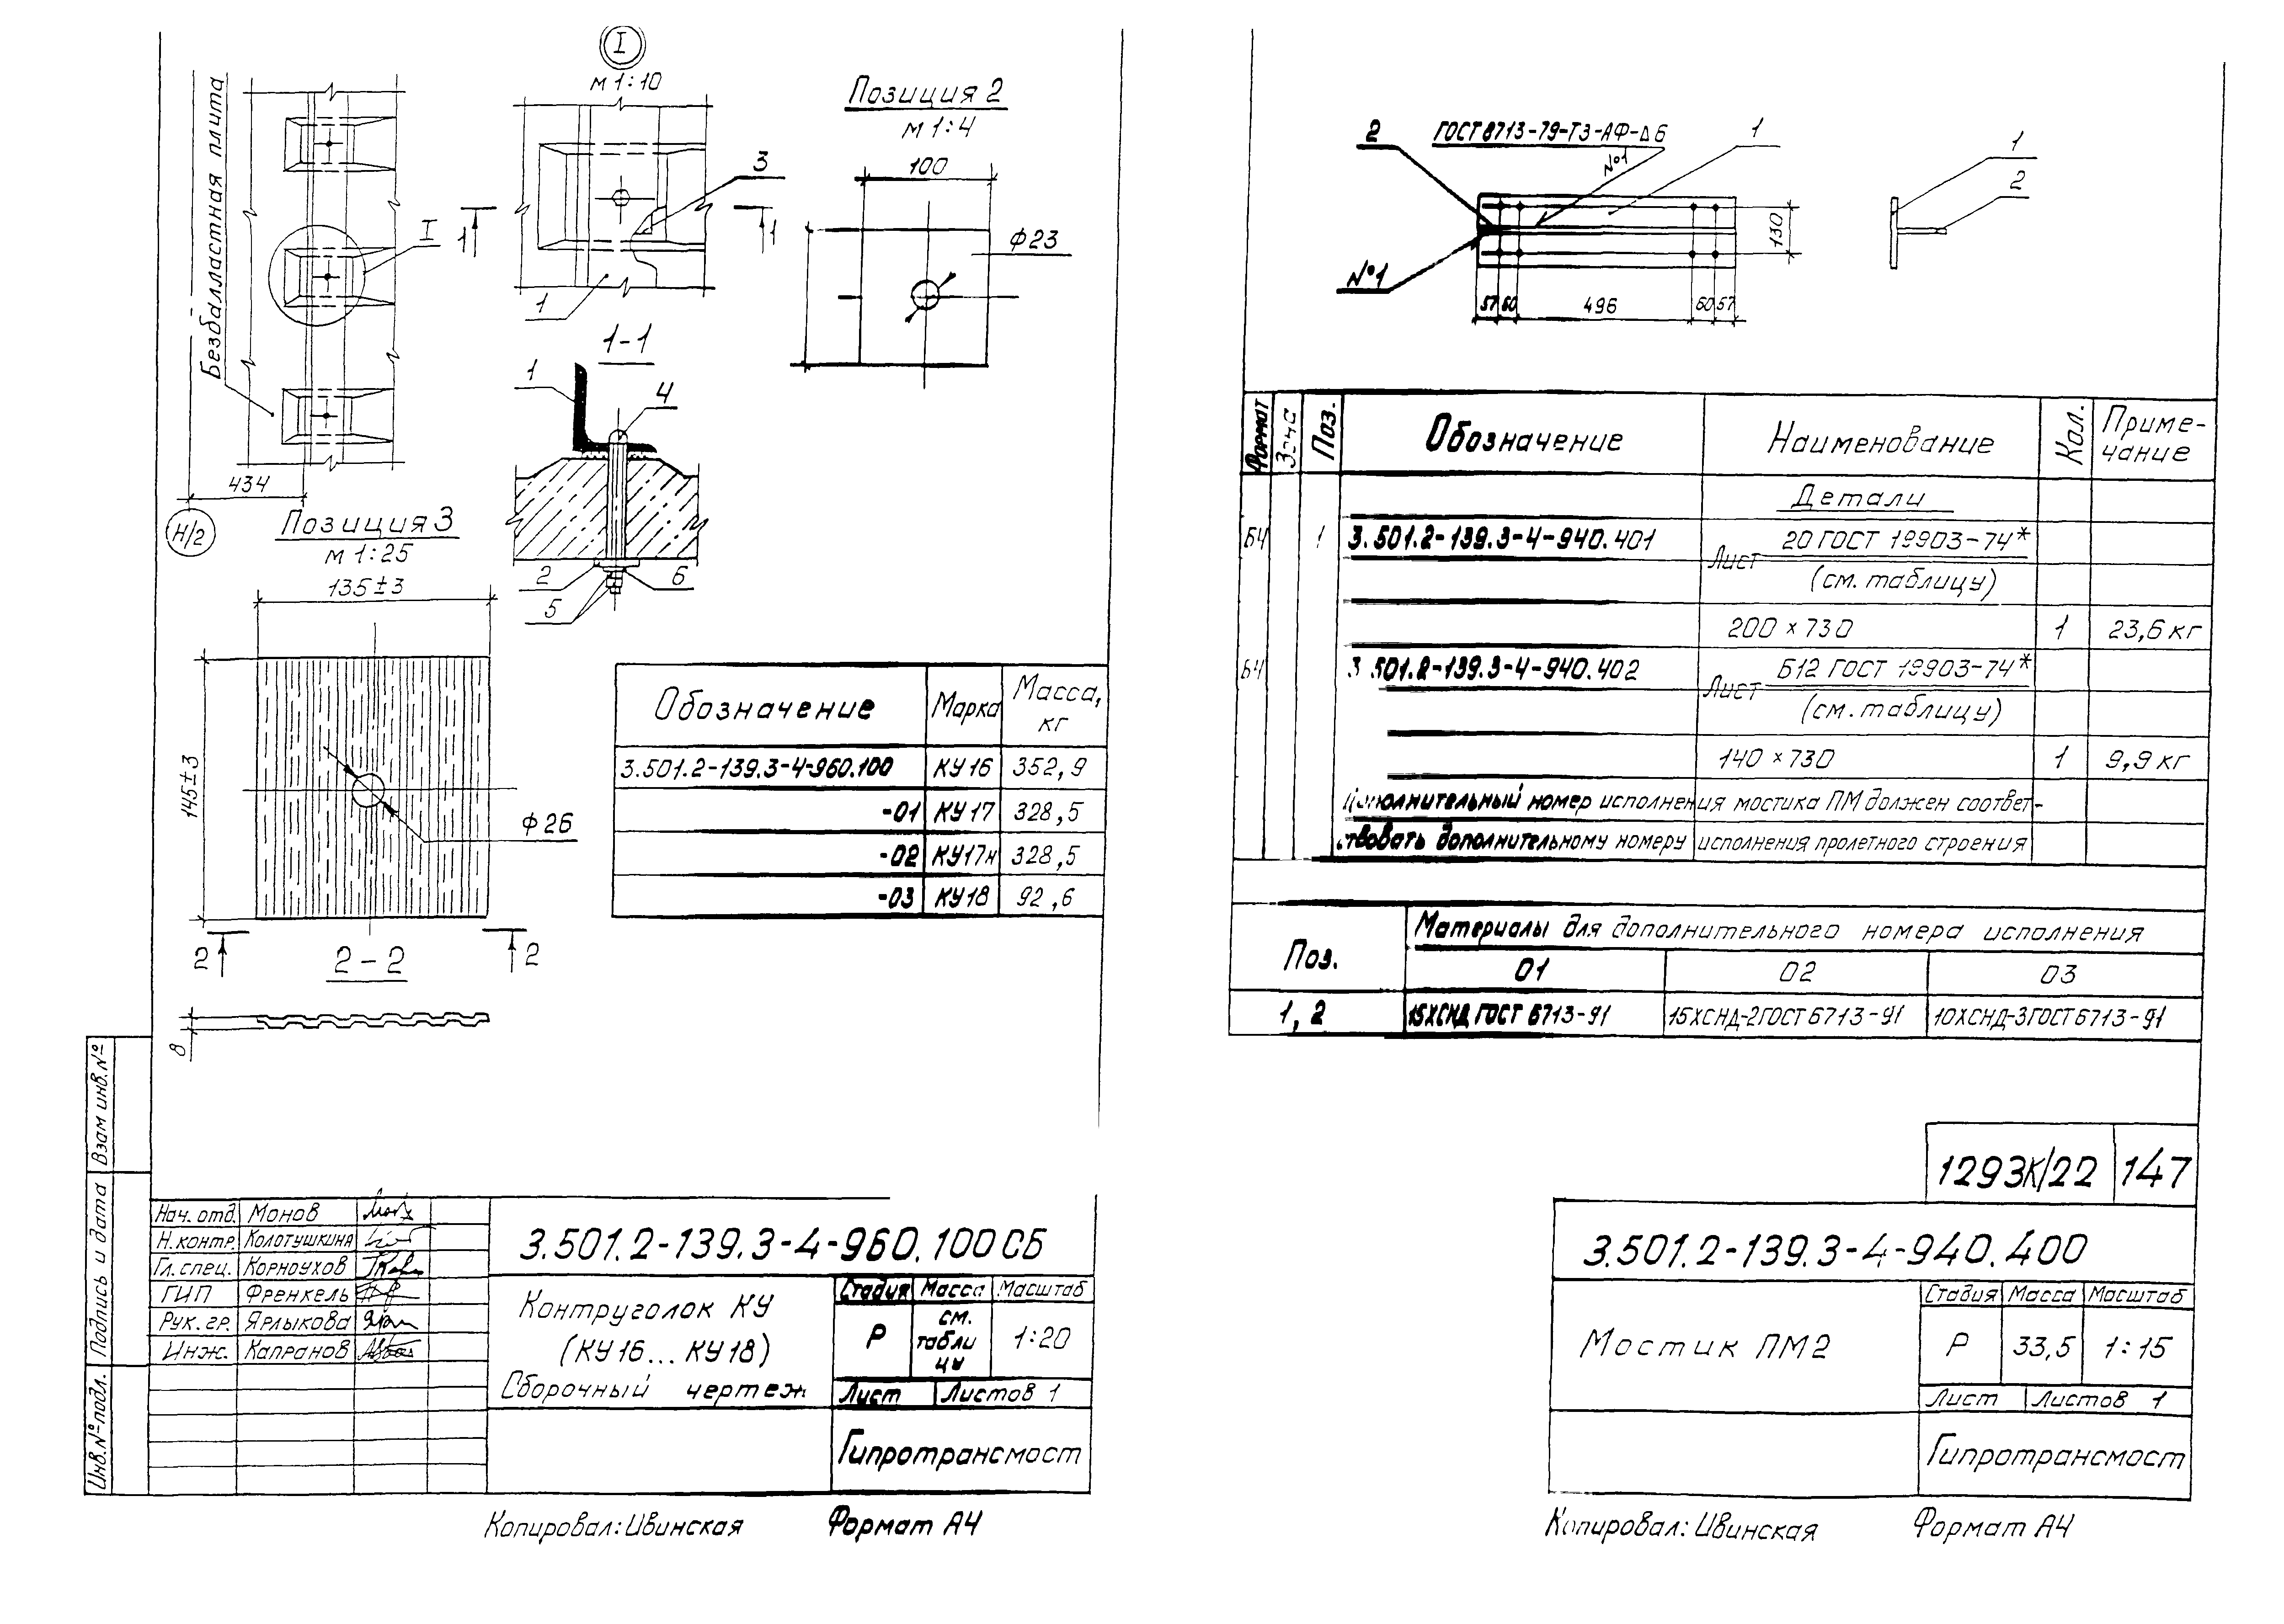 I
м 1:10
Безбалластная плита
I
1
1
3
1
434
Н/2
Позиция 2
м 1:4
100
ϕ23
1-1
1
4
2
6
5
Позиция 3
м 1:25
135±3
145±3
ϕ26
2
2
2-2
8
Обозначение Марка Масса, кг
3.501.2-139.3-4-960.100 КУ16 352,9
-01 КУ17 328,5
-02 КУ17н 328,5
-03 КУ18 92,6
Взам инв.№
Подпись и дата
Инв.№ подл.
Нач. отд. Монов
Н.контр. Колотушкина
Гл. спец. Корноухов
ГИП Френкель
Рук. гр. Ярлыкова
Инж. Капранов
3.501.2-139.3-4-960.100СБ
Контруголок КУ
(КУ16... КУ18)
Сборочный чертеж
Стадия Масса Масштаб
Р см. табли цу 1:20
Лист Листов 1
Гипротрансмост
Копировал: Ивинская Формат А4
2
ГОСТ 8713-79-Т3-АФ-Δ6
№1
1
№1
130
57 60 496 60 57
1
2
Формат Зона Поз. Обозначение Наименование Кол. Приме-чание
Детали
Б4 1 3.501.2-139.3-4-940.401 Лист 20 ГОСТ 19903-74*
(см. таблицу)
200 × 730 1 23,6 кг
Б4 3.501.2-139.3-4-940.402 Лист Б12 ГОСТ 19903-74*
(см. таблицу)
140 × 730 1 9,9 кг
Дополнительный номер исполнения мостика ПМ должен соответ-
ствовать дополнительному номеру исполнения пролетного строения
Поз. Материалы для дополнительного номера исполнения
01 02 03
1, 2 15ХСНД ГОСТ 6713-91 15ХСНД-2ГОСТ 6713-91 10ХСНД-3ГОСТ 6713-91
1293К/22 147
3.501.2-139.3-4-940.400
Мостик ПМ2
Стадия Масса Масштаб
Р 33,5 1:15
Лист Листов 1
Гипротрансмост
Копировал: Ивинская Формат А4